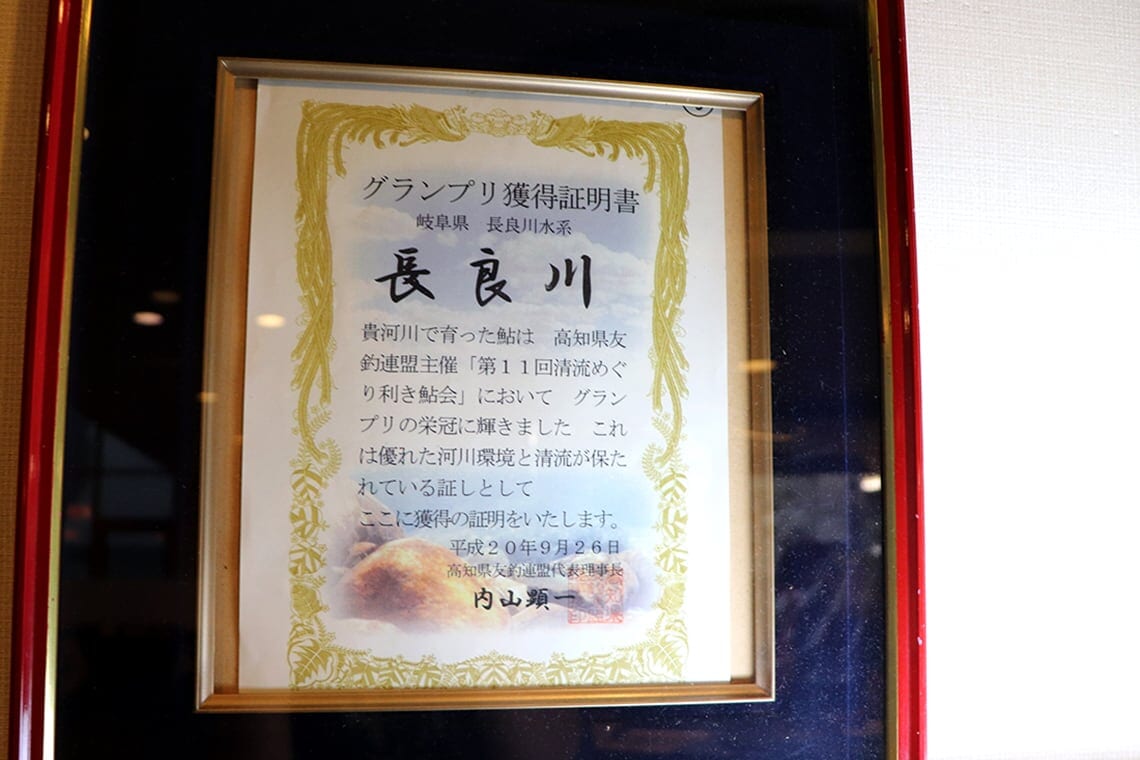 グランプリ獲得証明書
岐阜県　長良川水系
長良川
貴河川で育った鮎は　高知県友
釣連盟主催「第１１回清流めぐ
り利き鮎会」において　グラン
プリの栄冠に輝きました　これ
は優れた河川環境と清流が保た
れている証しとして
ここに獲得の証明をいたします。
平成２０年９月２６日
高知県友釣連盟代表理事長
内山顕一